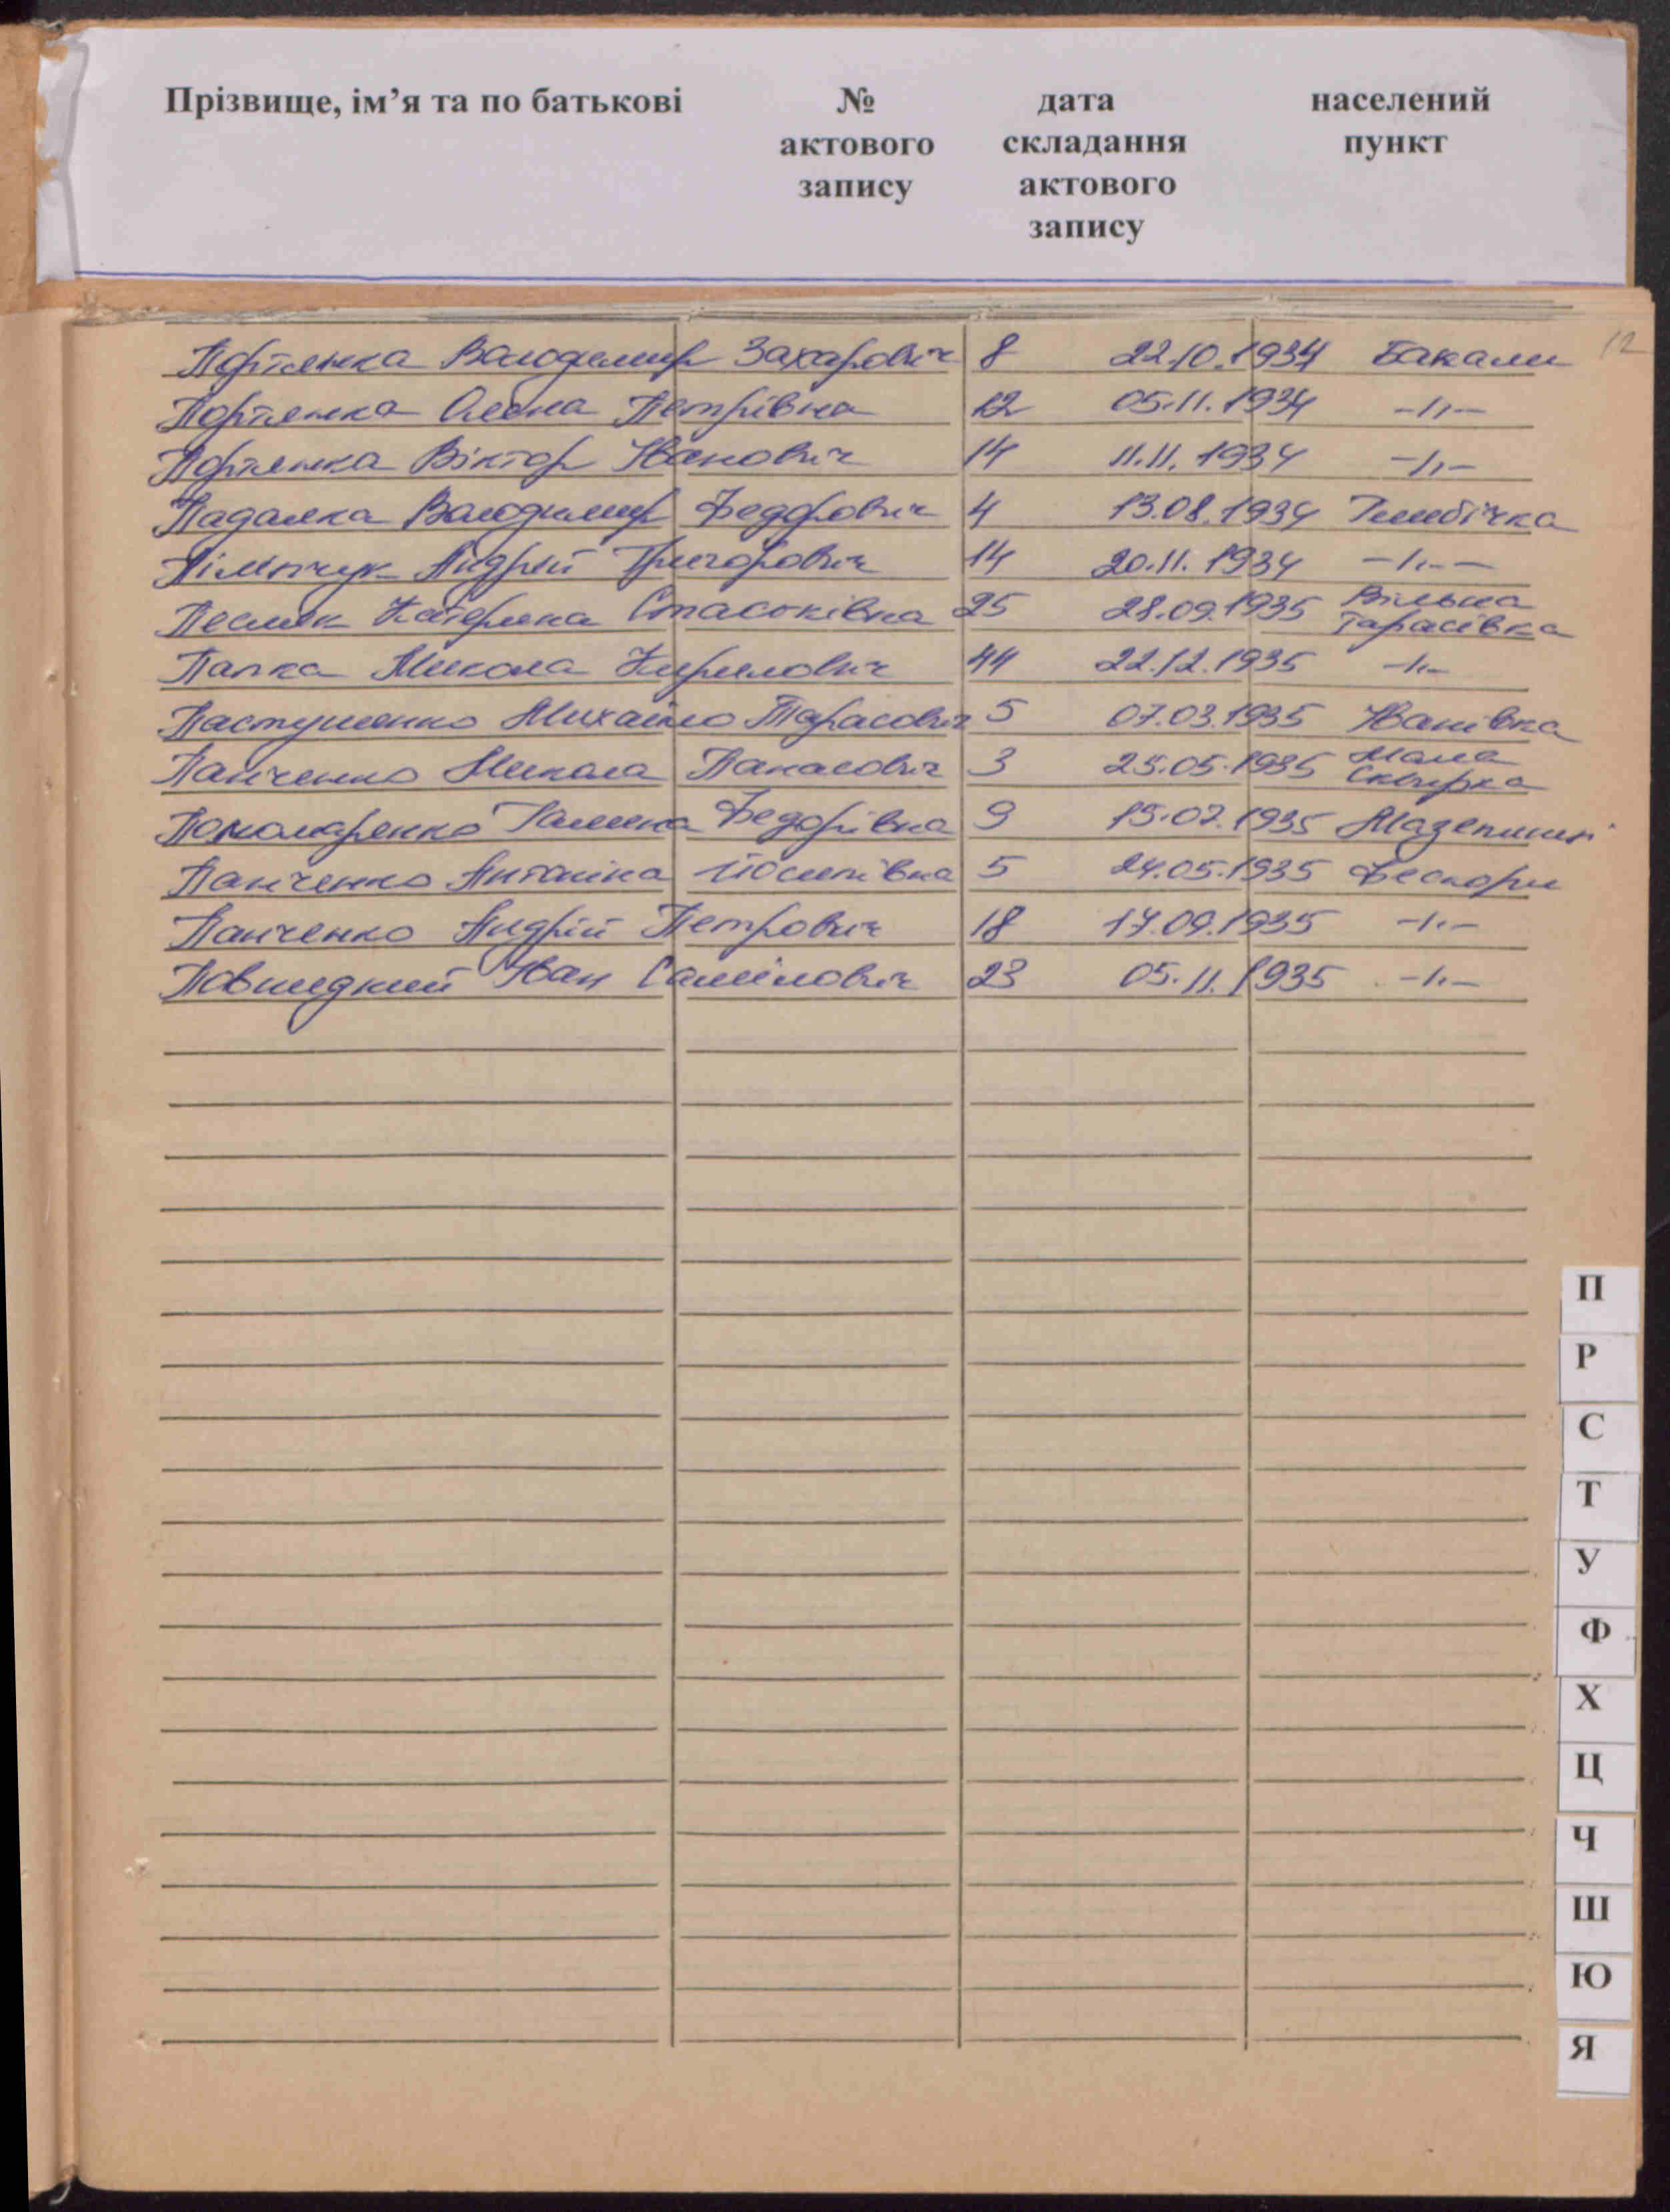 Прізвище, ім’я та по батькові № дата населений
актового складання пункт
запису актового
запису
12
Портянка Володимир Захарович 8 22.10.1934 Бакали
Портянка Олена Петрівна 12 05.11.1934 -//-
Портянка Віктор Іванович 14 11.11.1934 -//-
Падалка Володимир Федорович 4 13.08.1934 Глибічка
Пілипчук Андрій Григорович 14 20.11.1934 -//-
Песляк Катерина Стаськівна 25 28.09.1935 Вільна
Тарасівка
Папка Микола Кирилович 44 22.12.1935 -//-
Пастушенко Михайло Тарасович 5 07.03.1935 Іванівка
Панченко Микола Панасович 3 25.05.1935 Мала
Сквирка
Пономаренко Галина Федорівна 9 15.07.1935 Мазепинці
Панченко Антоніна Йосипівна 5 24.05.1935 Фесюри
Панченко Андрій Петрович 18 17.09.1935 -//-
Іван Самілович 23 05.11.1935 -//-
П
Р
С
Т
У
Ф
Х
Ц
Ч
Ш
Ю
Я